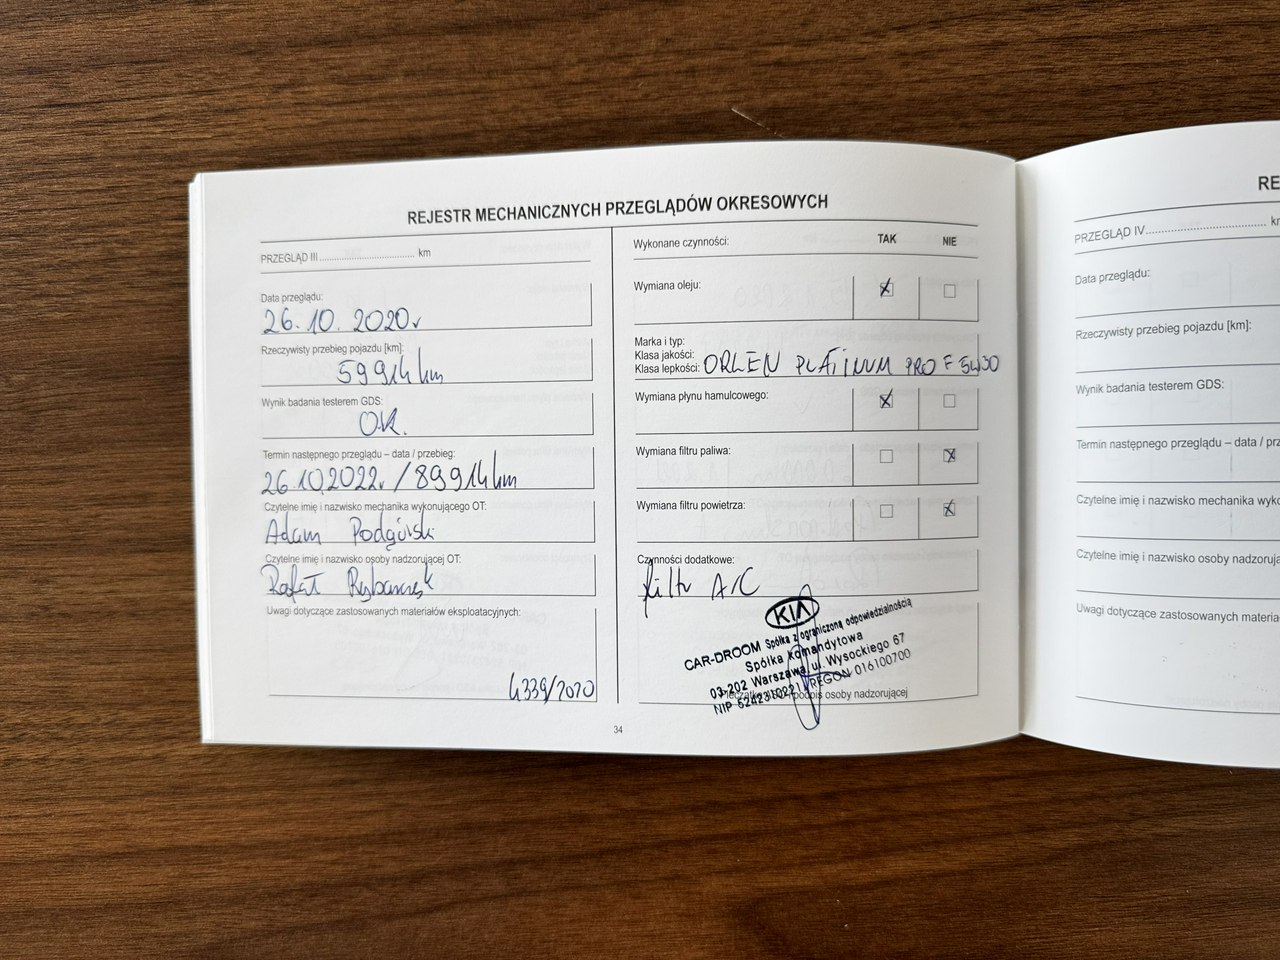 REJESTR MECHANICZNYCH PRZEGLĄDÓW OKRESOWYCH
PRZEGLĄD III.................................... km
Data przeglądu:
26.10.2020r
Rzeczywisty przebieg pojazdu [km]:
59914 km
Wynik badania testerem GDS:
OK.
Termin następnego przeglądu – data / przebieg:
26.10.2022r / 89914 km
Czytelne imię i nazwisko mechanika wykonującego OT:
Adam Podgórski
Czytelne imię i nazwisko osoby nadzorującej OT:
Rafał
Uwagi dotyczące zastosowanych materiałów eksploatacyjnych:
4339/2020
Wykonane czynności: TAK NIE
Wymiana oleju:
Marka i typ:
Klasa jakości:
Klasa lepkości: ORLEN PLATINUM PRO F 5W30
Wymiana płynu hamulcowego:
Wymiana filtru paliwa:
Wymiana filtru powietrza:
Czynności dodatkowe:
filtr A/C
KIA
CAR-DROOM Spółka z ograniczoną odpowiedzialnością
Spółka komandytowa
03-202 Warszawa, ul. Wysockiego 67
NIP REGON 016100700
podpis osoby nadzorującej
34
RE
PRZEGLĄD IV.................................... km
Data przeglądu:
Rzeczywisty przebieg pojazdu [km]:
Wynik badania testerem GDS:
Termin następnego przeglądu – data / prz
Czytelne imię i nazwisko mechanika wyko
Czytelne imię i nazwisko osoby nadzorują
Uwagi dotyczące zastosowanych materia